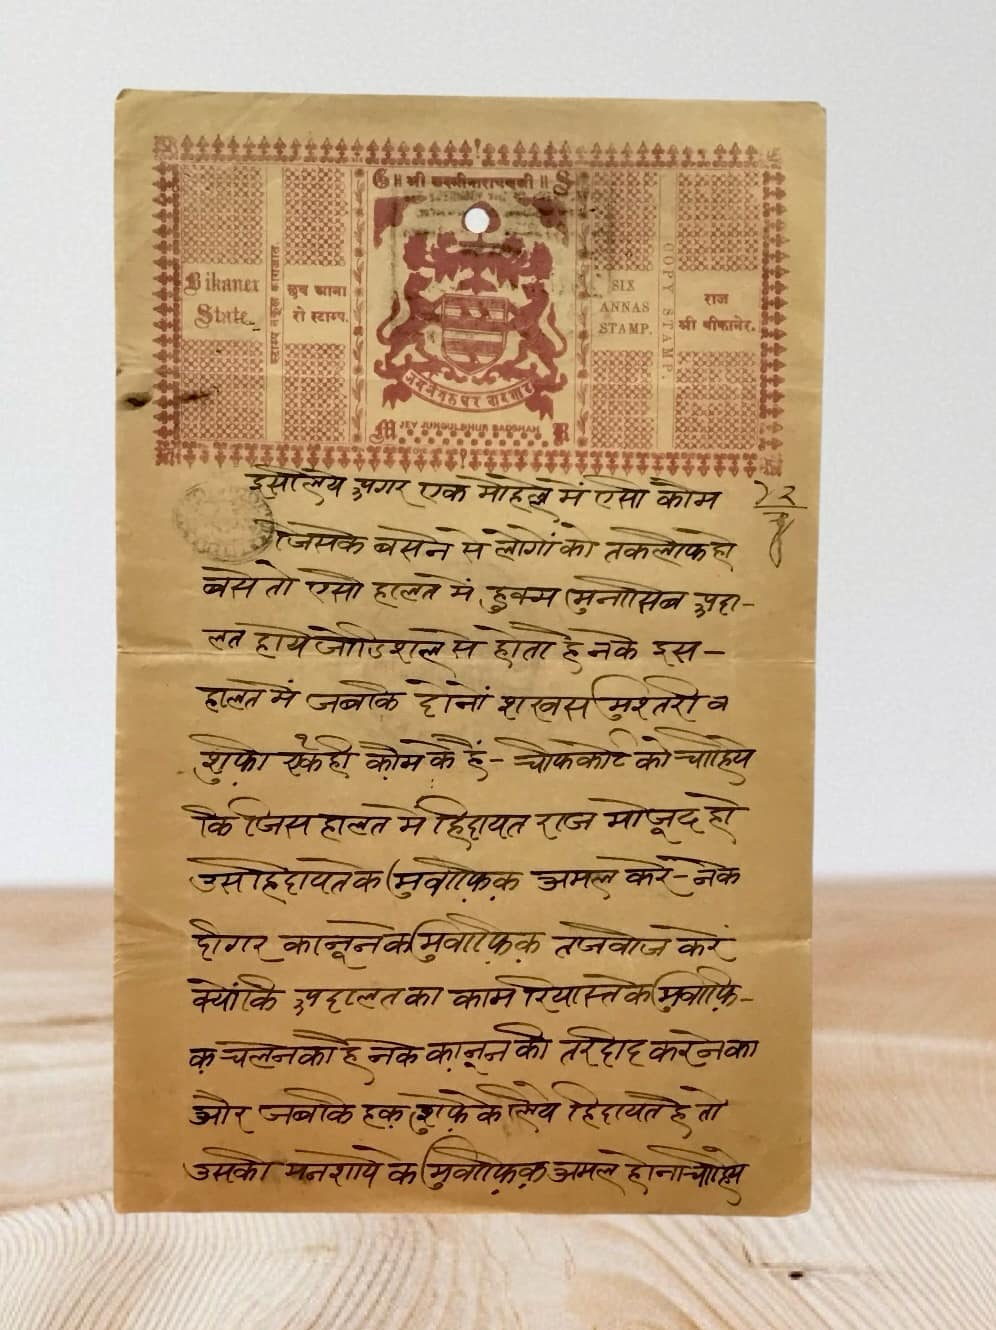 ॥ श्री लक्ष्मीनारायणजी ॥
Bikaner
State.
स्टाम्प नकूल कागजात
छव आना
रो स्टाम्प.
SIX
ANNAS
STAMP.
COPY STAMP.
राज
श्री बीकानेर.
जय जंगलधर बादशाह
JEY JUNGULDHUR BADSHAH
M R
इसलिये अगर एक मोहल्ले में ऐसी कौम
जिसके बसने से लोगों को तकलीफ हो
बसे तो ऐसी हालत में हुक्म मुनासिब अदा-
लत हाये जोडिशल से होता है नके इस-
हालत में जबकि दोनों शखस मुश्तरी व
शुफ़ा एक ही क़ौम के हैं- चीफकोर्ट को चाहिये
कि जिस हालत में हिदायत राज मौजूद हो
उस हिदायत के मुवाफ़िक़ अमल करे- नके
दीगर कानून के मुवाफ़िक़ तजवीज करे
क्योंकि अदालत का काम रियास्त के मुवाफ़ि-
क़ चलने का है नके क़ानून की तरदीद करने का
और जबकि हक़ शुफ़े के लिये हिदायत है तो
उसकी मनशाये के मुवाफ़िक़ अमल होना चाहिये